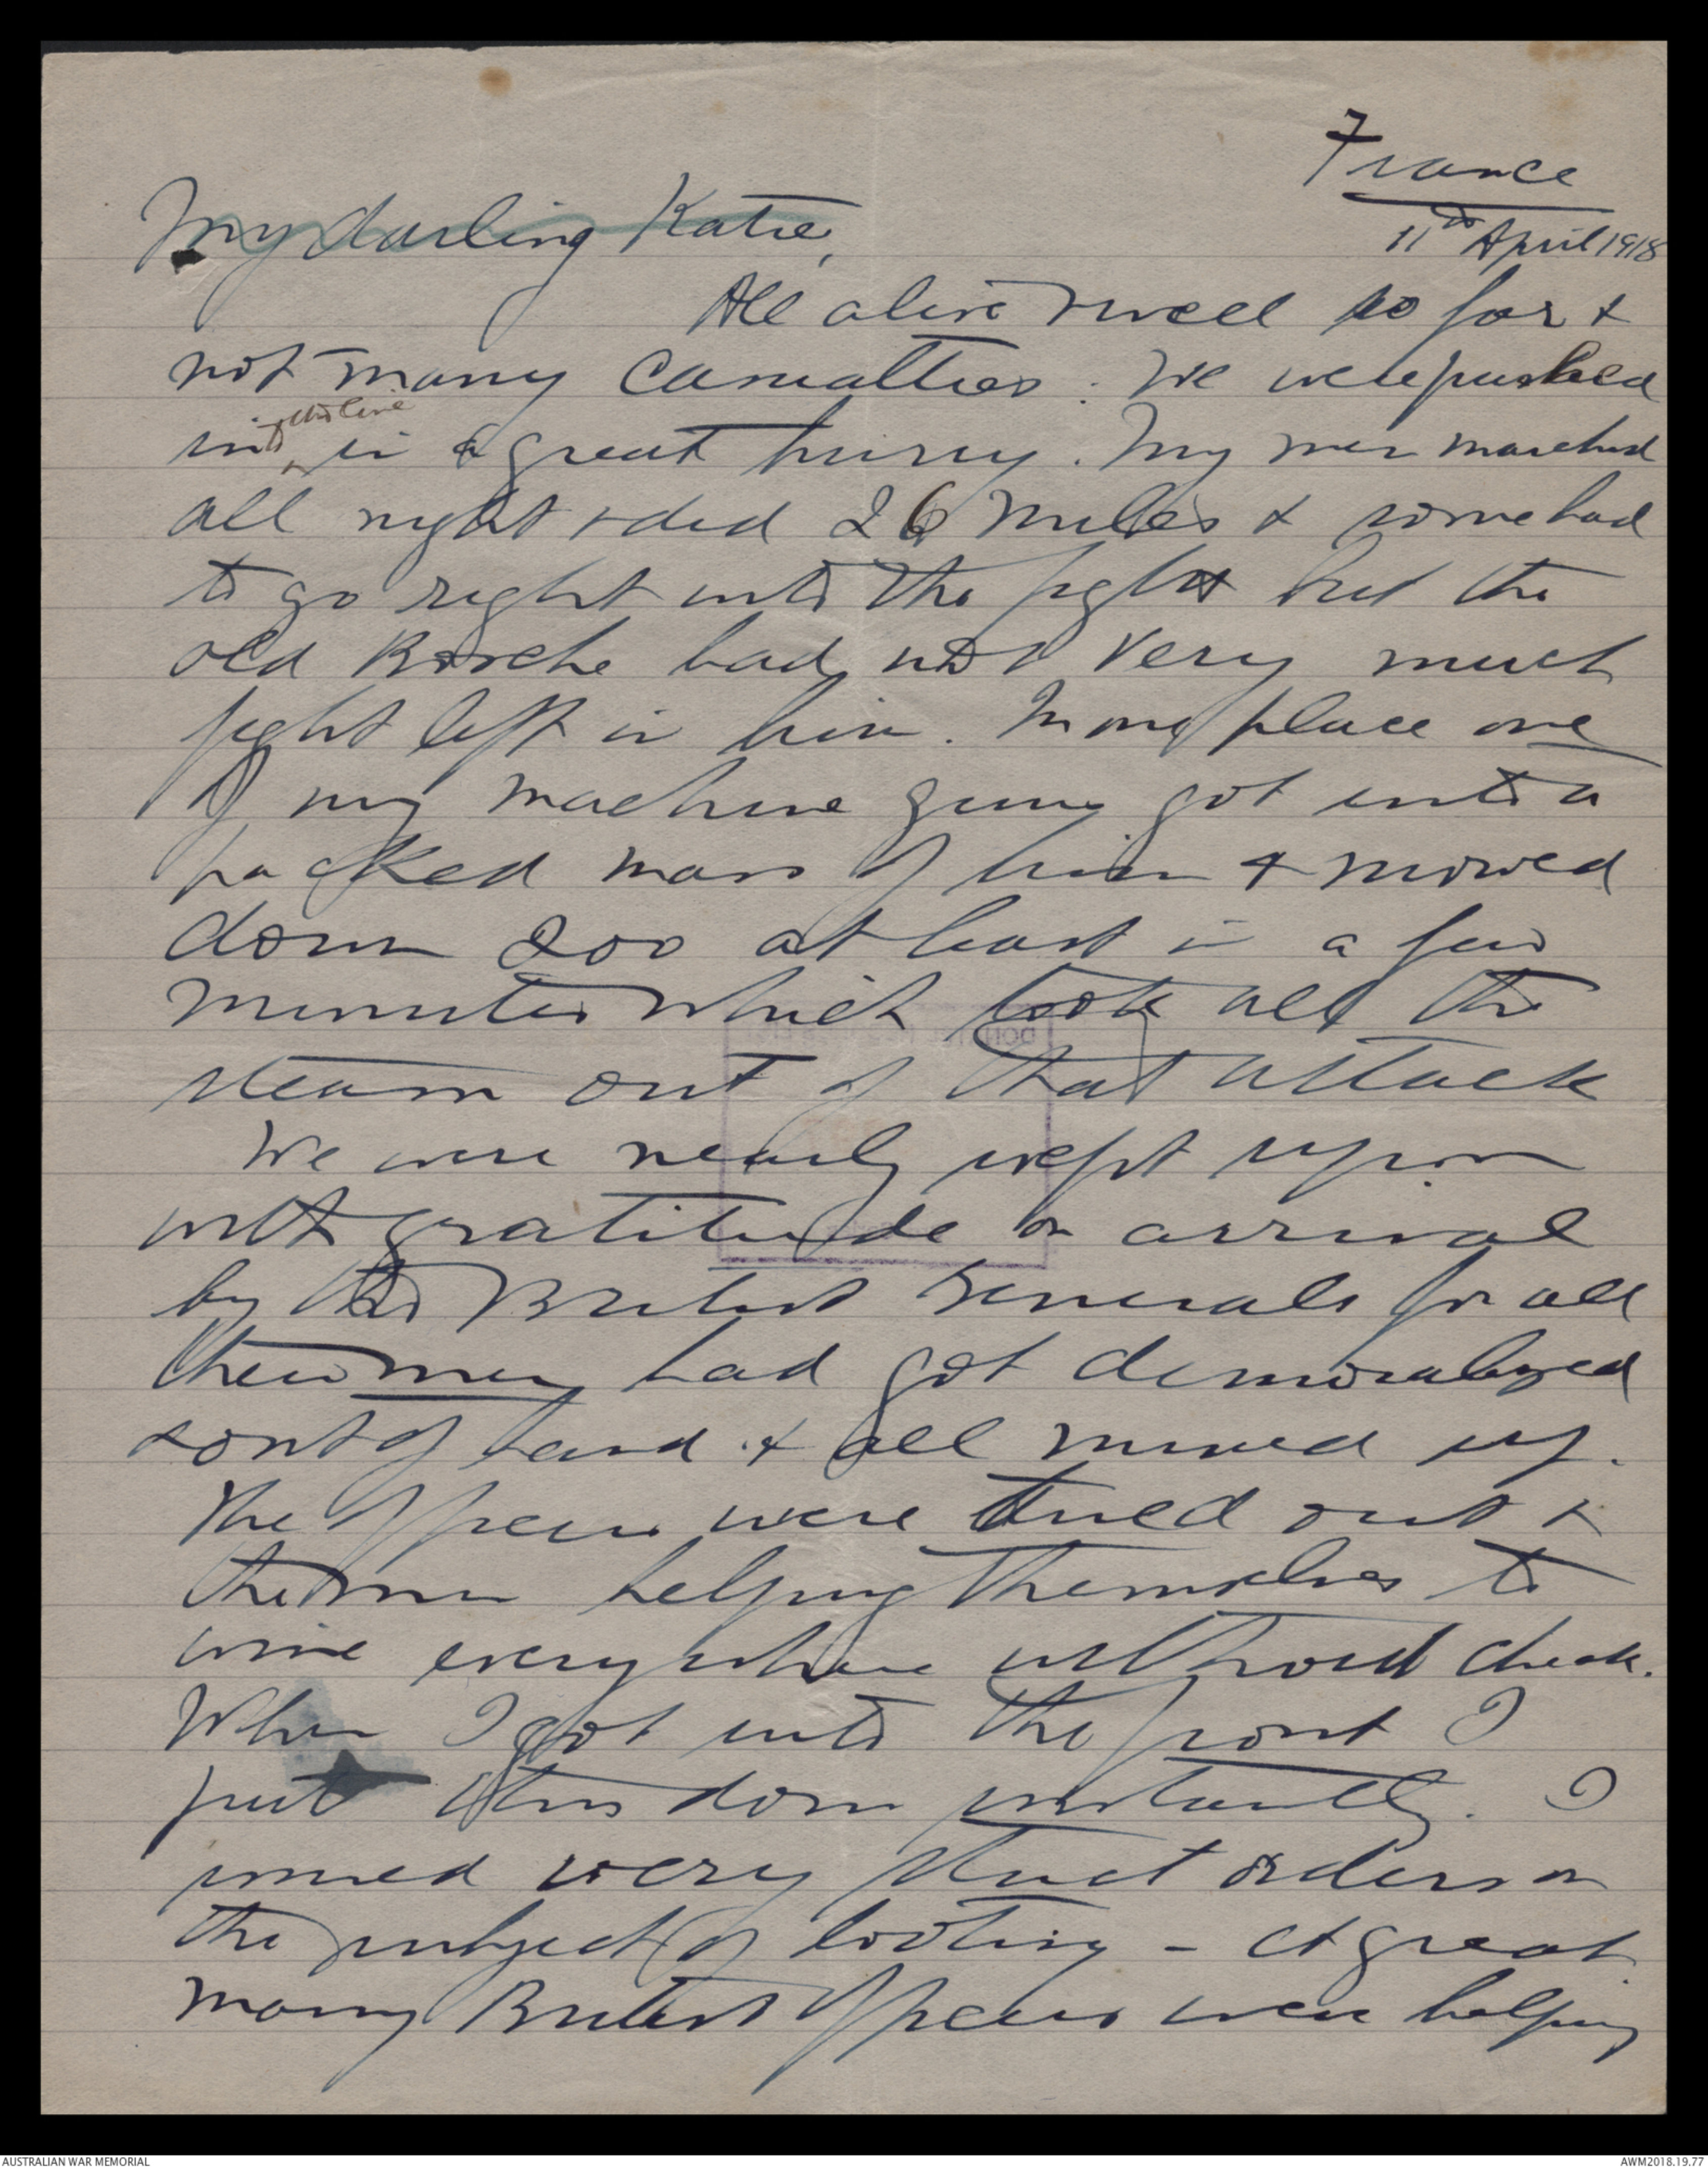 France
11th April 1918
My darling Katie,
All alive & well so far &
not many casualties. We were pushed
into the line in a great hurry. My men marched
all night & did 26 miles & some had
to go right into the fight but the
old Bosche had not very much
fight left in him. In one place one
of my machine guns got into a
packed mass of him & mowed
down 200 at least in a few
minutes which took all the
steam out of that attack
We were nearly wept upon
with gratitude on arrival
by the British Generals for all
their men had got demoralized
& out of hand & all mixed up.
The officers were tired out &
the men helping themselves to
wine everywhere without check.
When I got into the front I
put this down instantly. I
issued very strict orders on
the subject of looting - A great
many British officers were helping
AUSTRALIAN WAR MEMORIAL
AWM2018.19.77